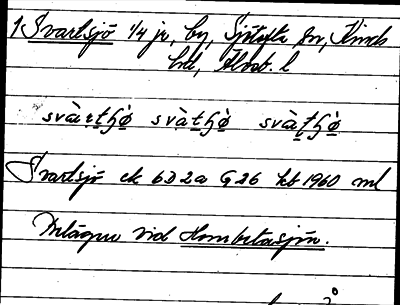 1 Svartsjö 1/4 jr, by, Sjötofta sn, Kinds
hd, Älvsb. l
svàrtʃø̀ svàtʃø̀ svàtʃø̀
Svartsjö ek 6D2a G26 hb 1960 ml
Inlägor vid Hornbetasjön.